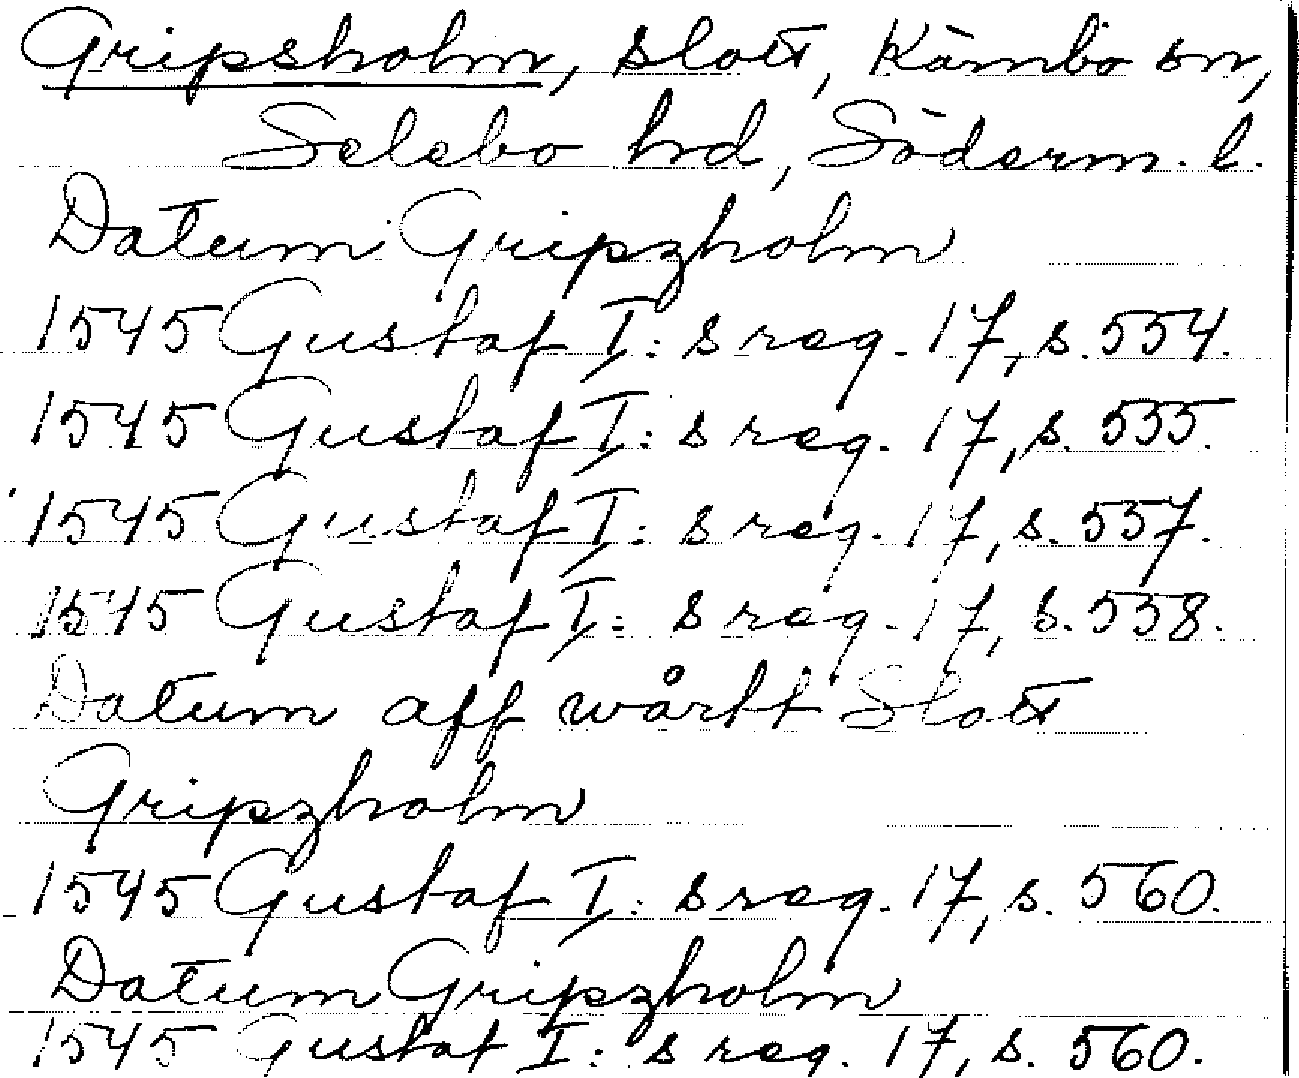 Gripsholm, slott, Kärnbo sn,
Selebo hd, Söderm. l.
Datum Gripzholm
1545 Gustaf I: s reg. 17, s. 554.
1545 Gustaf I: s reg. 17, s. 555.
1545 Gustaf I: s reg. 17, s. 557.
1545 Gustaf I: s reg. 17, s. 558.
Datum aff wårtt Slott
Gripzholm
1545 Gustaf I: s reg. 17, s. 560.
Datum Gripzholm
1545 Gustaf I: s reg. 17, s. 560.